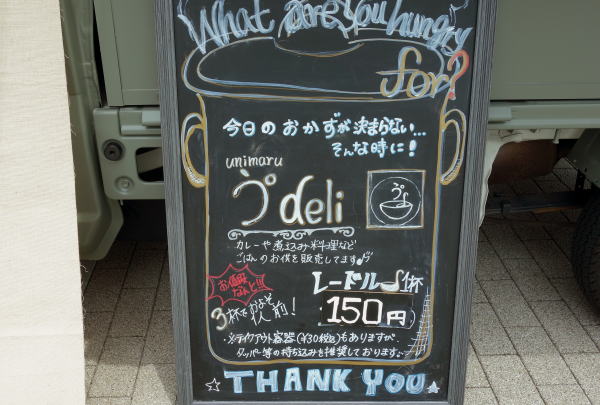 What are you hungry
for?
今日のおかずが決まらない...
そんな時に!
unimaru
う°deli
カレーや煮込み料理など
ごはんのお供を販売してます♪
お値段
なんと!!!
レードル 1杯
150円
3杯でおよそ 人前!
※テイクアウト容器(¥30税込)もありますが、
タッパー等の持ち込みを推奨しております。
THANK YOU